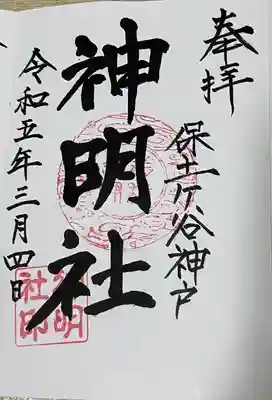 奉拝
保土ケ谷神戸
神明社
令和五年三月四日
神明社印